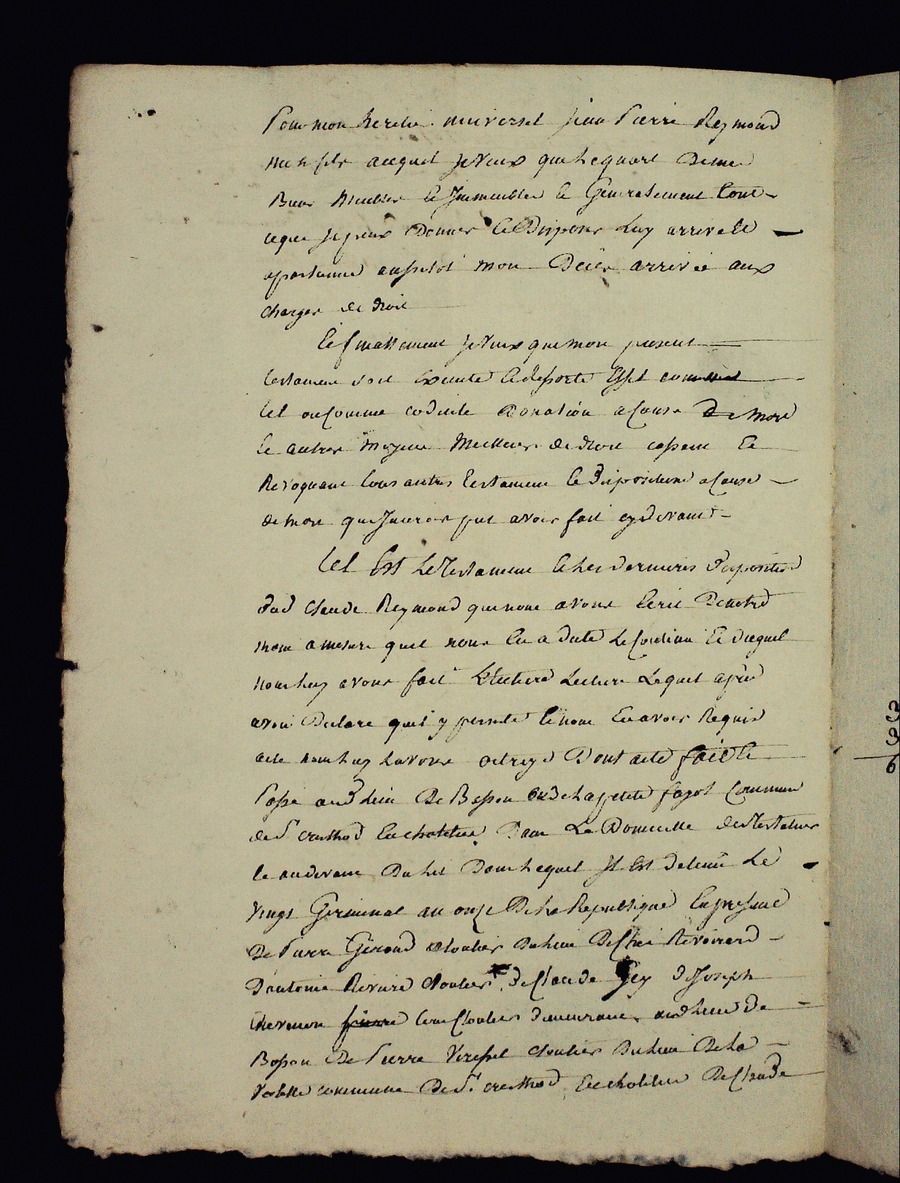 Pour mon heretié universel jean Pierre Reymond
mon fils auquel je veux que le quart de mes
Biens Meubles et Immeubles et Généralement tout
ceque je peux Donner et Disposer Luy arrive et
apartienne aussitot mon Décès arrivée aux
charges de droit
Et finallement je veux que mon present
testament soit executé et
tel ou comme codicile Donation a cause De mort
et autres moyens Meilleurs de droit cassant et
Revoquant tous autres testament et Dispositions a cause
de mort que J'aurois put avoir fait cy devant
Tel Est Le Testament et les dernieres Disposition
dud Claude Reymond que nous avons Ecrit De notre
main a mesure quil nous en a dicté Le contenu Et duquel
nous luy avons fait Lecture Lequel après
avoir Declaré quil y persiste et nous en avoir Requis
acte nous luy Lavons octroyé Dont acte fait et
Passé aud lieu De Besson de la petite fagot Commune
de St en Dans Le Domicille du testateur
et audevant Du lit Dans lequel Il Est detenu Le
vingt Germinal an onze De la Republique En presence
De Pierre Giroud cloutier Du lieu De chez Revoirard
D'antoine Revoire cloutier, de Claude Gey d Joseph
tous cloutiers demeurants aud lieu de
Besson De Pierre cloutier Du lieu De la
commune De St De Claude